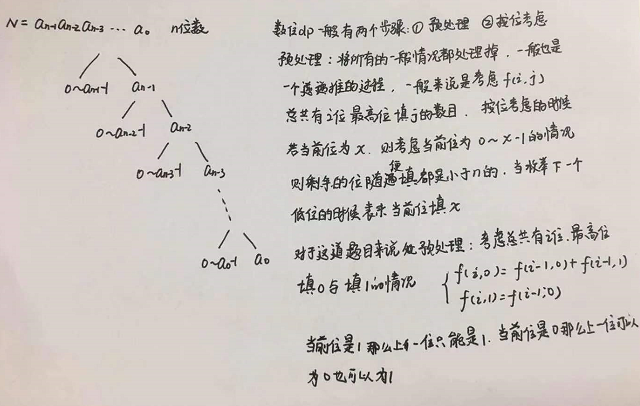 N = aₙ₋₁aₙ₋₂aₙ₋₃ ⋯ a₀ n位数
0~aₙ₋₁-1 aₙ₋₁
0~aₙ₋₂-1 aₙ₋₂
0~aₙ₋₃-1 aₙ₋₃
0~a₀-1 a₀
数位dp一般有两个步骤:① 预处理 ② 按位考虑
预处理:将所有的一般情况都处理掉,一般也是
一个递推的过程,一般来说是考虑f(i,j)
总共有i位最高位填j的数目. 按位考虑的时候
若当前位为x,则考虑当前位为0~x-1的情况
则剩余的位随便填都是小于n的,当枚举下一个
低位的时候表示当前位填x
对于这道题目来说 预处理:考虑总共有i位,最高位
填0与填1的情况 { f(i,0) = f(i-1,0)+f(i-1,1)
f(i,1)=f(i-1,0)
当前位是1那么上一位只能是1.当前位是0那么上一位可以
为0也可以为1